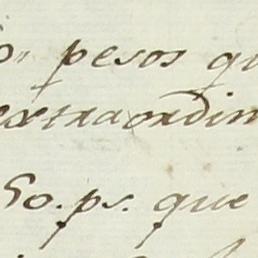 pesos qu
extraordin
50. ps. que